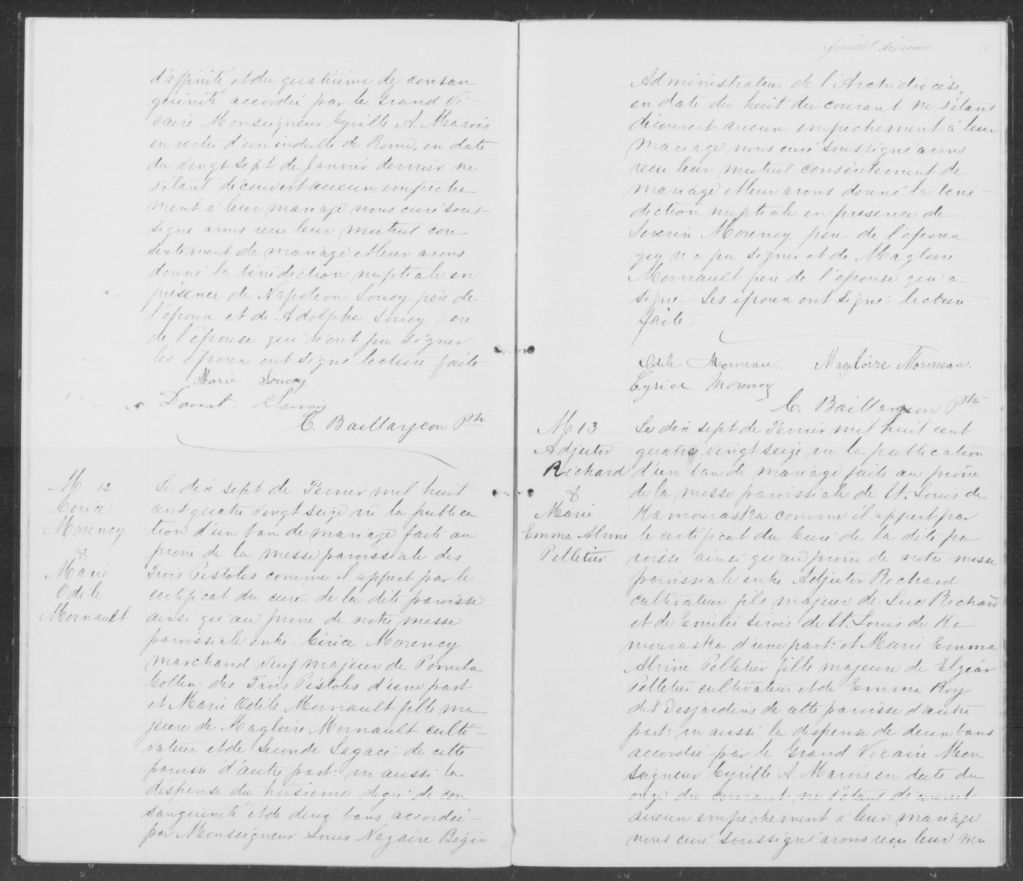 d'affinité et du quatrième de consan
guinité accordée par le Grand Vi-
caire Monseigneur Cyrille A. Marois
en vertu d'un indulte de Rome, en date
du vingt sept de Janvier dernier ne
s'étant découvert aucun empêche
ment à leur mariage nous curé sous-
signé avons reçu leur mutuel con
sentement de mariage et leur avons
donné la bénédiction nuptiale en
présence de Napoléon Soucy père de
l'époux et de Adolphe Soucy père
de l'épouse qui n'ont pu signer
les époux ont signé lecture faite
Marie Soucy
Donat Soucy
C. Baillargeon Ptre
M 12
Cirice
Morency
&
Marie
Odile
Mornault
Le dix sept de Février mil huit
cent quatre vingt seize vu la publica
tion d'un ban de mariage faite au
prône de la messe paroissiale des
Trois Pistoles comme il appert par le
certificat du curé de la dite paroisse
ainsi qu'au prône de notre messe
paroissiale entre Cirice Morency
marchand veuf majeur de
Collin des Trois Pistoles d'une part
et Marie Odile Mornault fille ma
jeure de Magloire Mornault culti-
vateur et de Seconde Lagacé de cette
paroisse d'autre part: vu aussi la
dispense du troisième degré de con
sanguinité et de deux bans accordée
par Monseigneur Louis Nazaire Bégin
feuillet dixième
Administrateur de l'Archidiocèse,
en date du huit du courant ne s'étant
découvert aucun empêchement à leur
mariage nous curé soussigné avons
reçu leur mutuel consentement de
mariage et leur avons donné la béné-
diction nuptiale en présence de
Sévérin Morency père de l'époux
qui n'a pu signer et de Magloire
Mornault père de l'épouse qui a
signé. Les époux ont signé lecture
faite.
Odile Morneau. Magloire Morneau.
Cyrice Morency
C. Baillargeon Ptre
M 13
Adjutor
Richard
&
Marie
Emma Alvine
Pelletier
Le dix sept de Février mil huit cent
quatre vingt seize vu la publication
d'un ban de mariage faite au prône
de la messe paroissiale de St. Louis de
Kamouraska comme il appert par
le certificat du Curé de la dite pa
roisse ainsi qu'au prône de notre messe
paroissiale entre Adjutor Richard
cultivateur fils majeur de Luc Richard
et de Emilie Sirois de St. Louis de Ka
mouraska d'une part: et Marie Emma
Alvine Pelletier fille majeure de Elzéar
Pelletier cultivateur et de Emma Roy
dit Desjardins de cette paroisse d'autre
part: vu aussi la dispense de deux bans
accordée par le Grand Vicaire Mon
seigneur Cyrille A. Marois en date du
onze du courant ne s'étant découvert
aucun empêchement à leur mariage
nous curé soussigné avons reçu leur mu